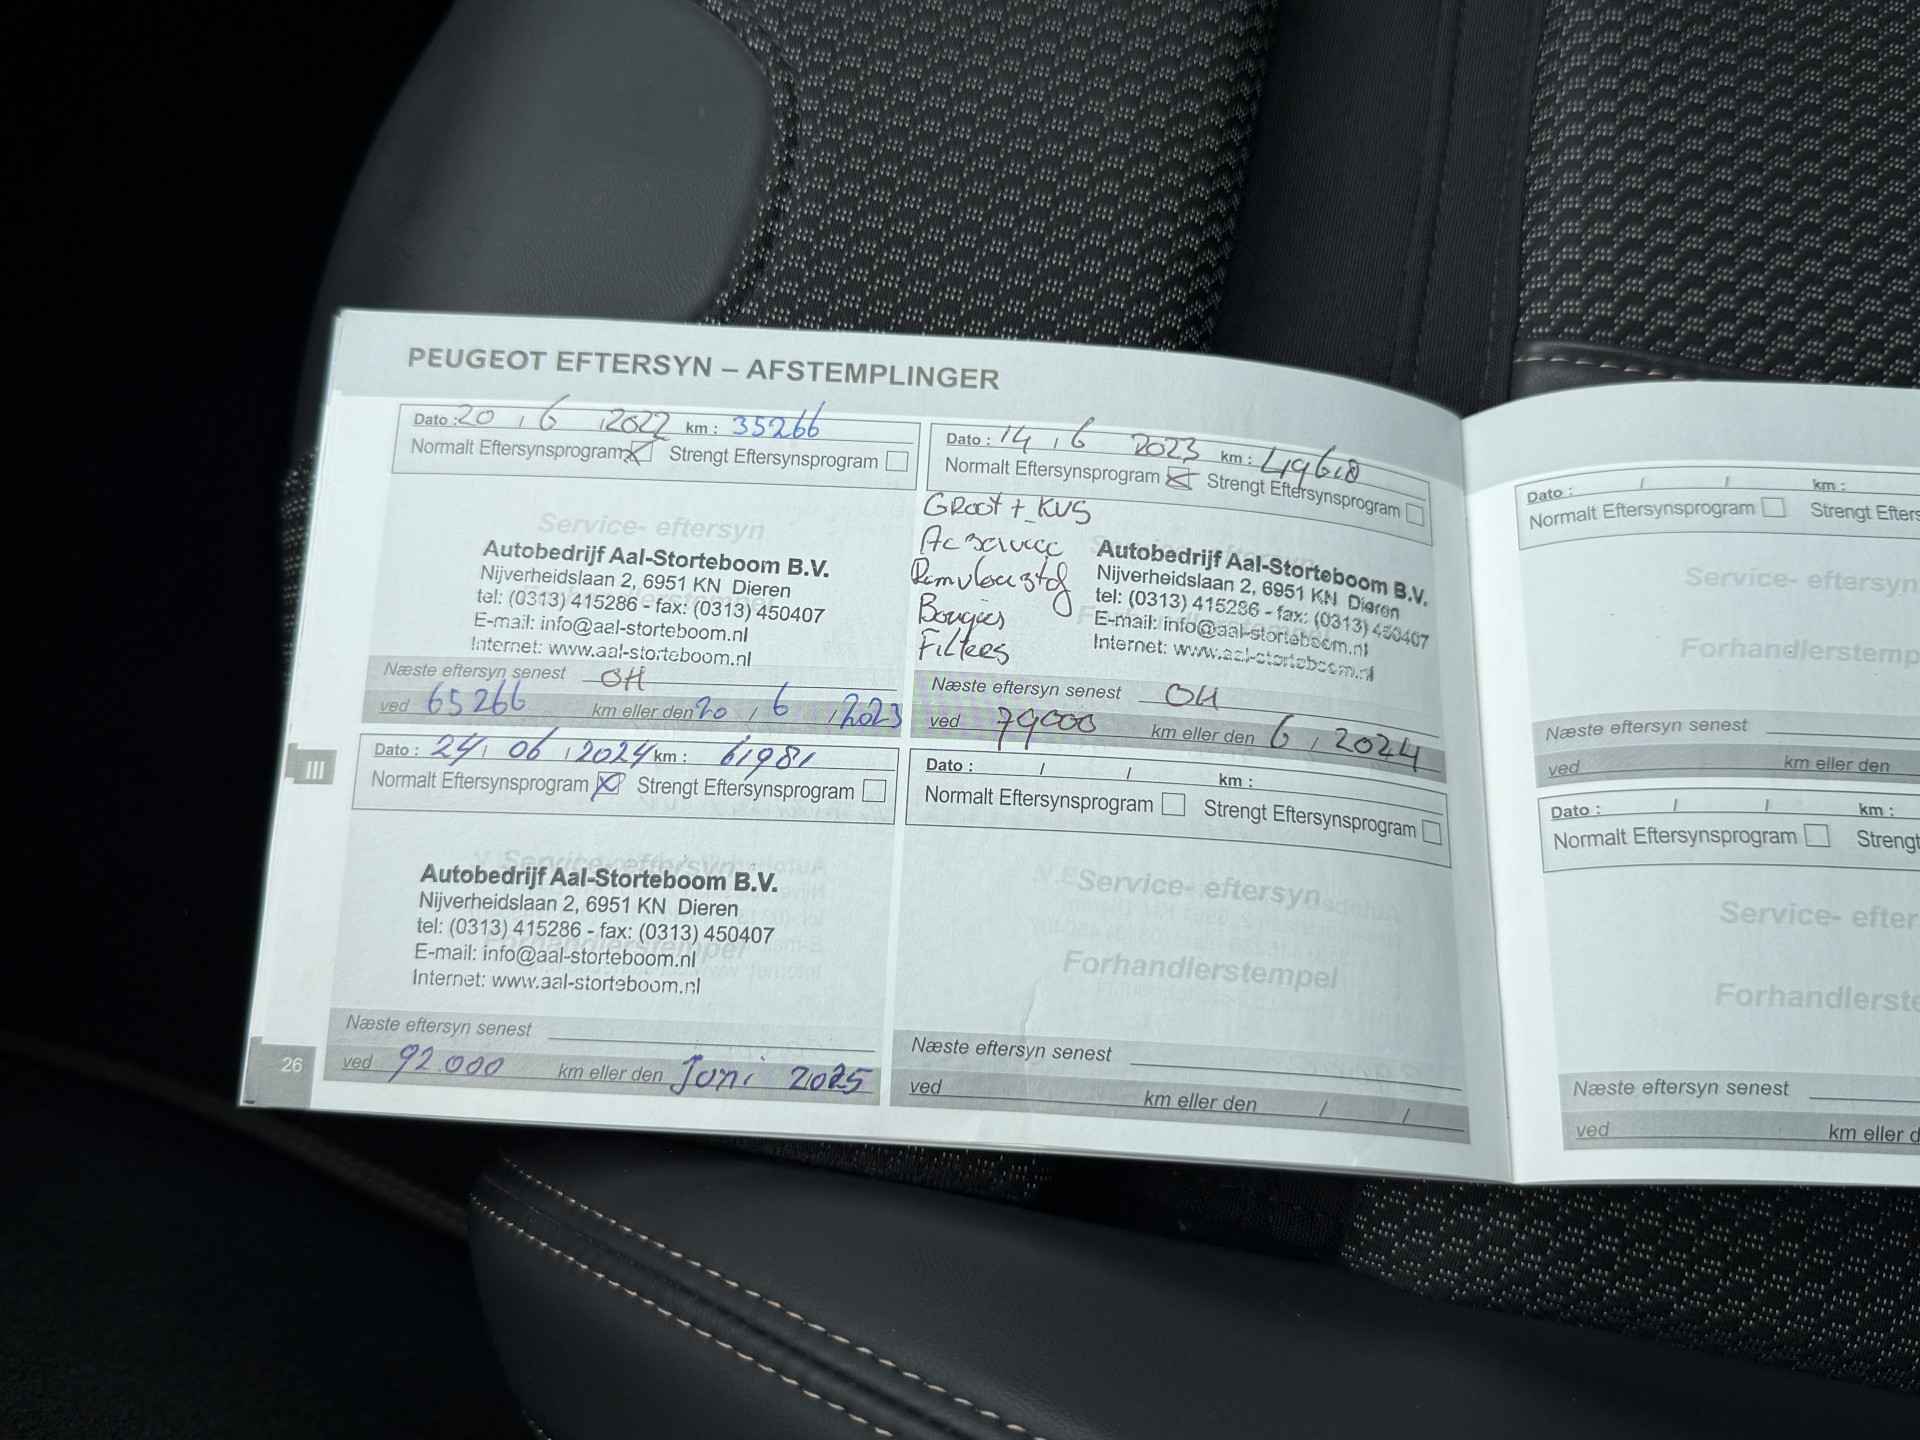 PEUGEOT EFTERSYN – AFSTEMPLINGER
Dato : 20 / 6 / 2022 km : 35266
Normalt Eftersynsprogram Strengt Eftersynsprogram
Service- eftersyn
Autobedrijf Aal-Storteboom B.V.
Nijverheidslaan 2, 6951 KN Dieren
tel: (0313) 415286 - fax: (0313) 450407
E-mail: info@aal-storteboom.nl
Internet: www.aal-storteboom.nl
Næste eftersyn senest OH
ved 65266 km eller den 20 / 6 / 2023
Dato : 14 / 6 2023 km : 49618
Normalt Eftersynsprogram Strengt Eftersynsprogram
GROOT + KVS
Ac service
Remvloeistof
Bougies
Filters
Autobedrijf Aal-Storteboom B.V.
Nijverheidslaan 2, 6951 KN Dieren
tel: (0313) 415286 - fax: (0313) 450407
E-mail: info@aal-storteboom.nl
Internet: www.aal-storteboom.nl
Næste eftersyn senest OH
ved 79000 km eller den 6 / 2024
III
Dato : 24 / 06 / 2024 km : 61981
Normalt Eftersynsprogram Strengt Eftersynsprogram
Service- eftersyn
Autobedrijf Aal-Storteboom B.V.
Nijverheidslaan 2, 6951 KN Dieren
tel: (0313) 415286 - fax: (0313) 450407
Forhandlerstempel
E-mail: info@aal-storteboom.nl
Internet: www.aal-storteboom.nl
Næste eftersyn senest
ved 92.000 km eller den Juni 2025
26
Dato : / / km :
Normalt Eftersynsprogram Strengt Eftersynsprogram
Service- eftersyn
Forhandlerstempel
Næste eftersyn senest
ved km eller den / /
Dato : / / km :
Normalt Eftersynsprogram Strengt Efters
Service- eftersyn
Forhandlerstemp
Næste eftersyn senest
ved km eller den
Dato : / / km :
Normalt Eftersynsprogram Strengt
Service- efter
Forhandlerst
Næste eftersyn senest
ved km eller d